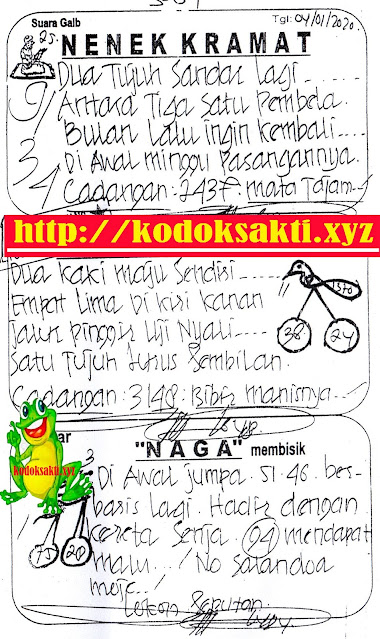 Suara Gaib
Tgl: 04/01/2020.
25.
NENEK KRAMAT
Dua Tujuh Sandar Lagi
Antara Tiga Satu Pembela.
Bulan Lalu ingin Kembali
Di Awal minggu Pasangannya.
Cadangan: 2437 mata Tajam
9/
3/
1
http://kodoksakti.xyz
Dua kaki maju Sendiri
Empat Lima Di kiri Kanan
Jalur pinggir Uji Nyali
Satu Tujuh terus Sembilan.
Cadangan: 3148: Bibir manisnya
38
24
"NAGA" membisik
kodoksakti.xyz
Di Awal jumpa. 51. 46. ber-
baris lagi. Hadir dengan
kereta Senja. 94 mendapat
malu..! No Salandoa
75
20